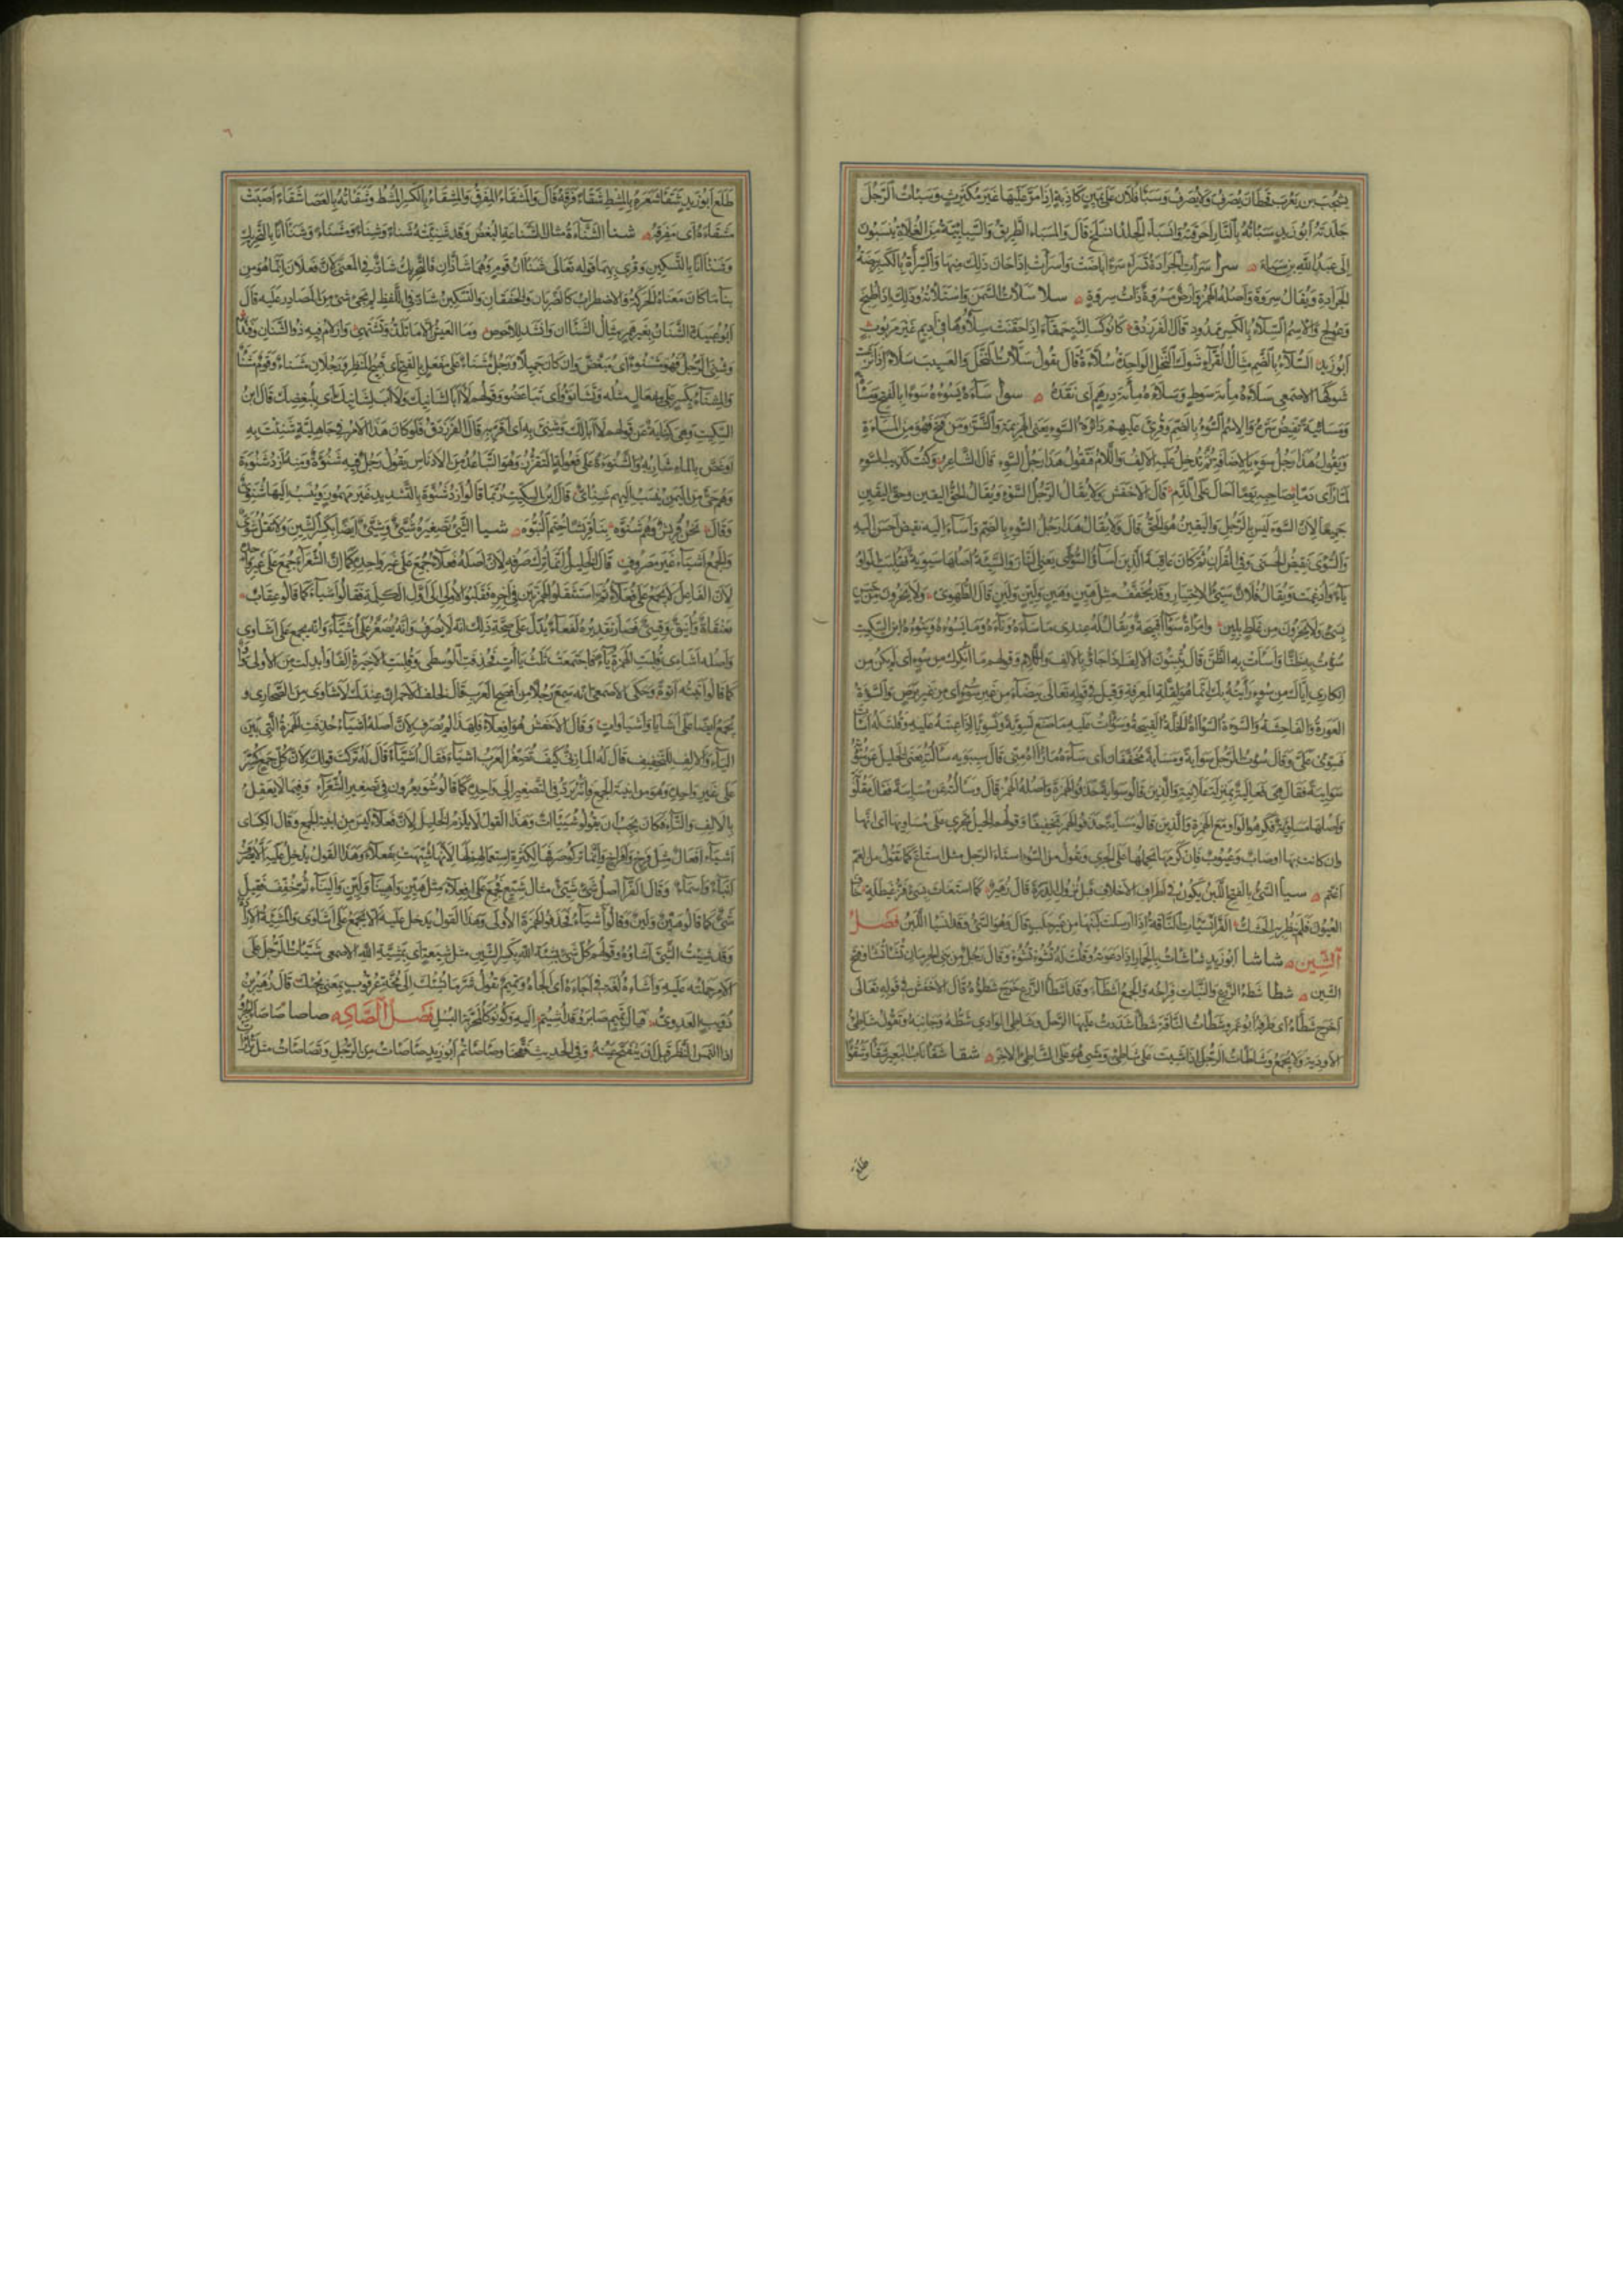 يشجب بن يعرب بن قحطان يصرف ولا يصرف وسبأ فلان على يمين كاذبة إذا مر عليها غير مكترث وسبأت الرجل
جلدته أبو زيد سبأته بالنار أحرقته وانسبأ الجلد انسلخ قال والمسبأ الطريق والسبائية من الغلاة ينسبون
إلى عبد الله بن سبأ سرأ سرأت الجرادة تسرأ سرءا باضت وأسرأت إذا حان ذلك منها والسرأة بالكسر بيضة
الجرادة ويقال سروة وأصله الهمز وأرض مسروة ذات سروة سلا سلأت السمن واستلأته وذلك إذا طبخ
وعولج والاسم السلاء بالكسر ممدود قال الفرزدق كانوا كسالئة حمقاء إذ حقنت سلاءها في أديم غير مربوب
أبو زيد السلاء بالضم مثال القراء شوك النخل الواحدة سلاءة قال يقول سلأت النخل والعسيب سلاء إذا نزعت
شوكها الأصمعي سلأه مائة سوط وسلأه مائة درهم أي نقده سوأ ساءه يسوءه سوءا بالفتح ومساءة
ومسائية نقيض سره والاسم السوء بالضم وقرئ عليهم دائرة السوء يعني الهزيمة والشر ومن فتح فهو من المساءة
وتقول هذا رجل سوء بالإضافة ثم تدخل عليه الألف واللام فتقول هذا رجل السوء قال الشاعر وكنت كذئب السوء
لما رأى دما بصاحبه يوما أحال على الدم قال الأخفش ولا يقال الرجل السوء ويقال الحق اليقين وحق اليقين
جميعا لأن السوء ليس بالرجل واليقين هو الحق قال ولا يقال هذا رجل السوء بالضم وأساء إليه نقيض أحسن إليه
والسوءى نقيض الحسنى وفي القرآن ثم كان عاقبة الذين أساؤا السوءى يعني النار والسيئة أصلها سيوئة فقلبت الواو
ياء وأدغمت ويقال فلان سيئ الاختيار وقد يخفف مثل هين وهين ولين ولين قال الطهوي ولا يجزون من حسن
بسيء ولا يجزون من غلظ بلين وامرأة سوآء قبيحة ويقال له عندي ما ساءه وناءه وما يسوءه وينوءه ابن السكيت
سؤت به ظنا وأسأت به الظن قال يثبتون الألف إذا جاؤا بالألف واللام وقولهم ما أنكرك من سوء أي لم يكن من
إنكاري إياك من سوء رأيته بك إنما هو لقلة المعرفة وقيل في قوله تعالى بيضاء من غير سوء أي من غير برص والسوءة
العورة والفاحشة والسوءة السوآء الخلة القبيحة وسوأت عليه ما صنع تسوئة وتسويا إذا عبته عليه وقلت له أسأت
فسوئ علي وقال سؤت الرجل سواية ومساية مخففان أي ساءه ما رآه مني قال سيبويه سألته يعني الخليل عن سؤته
سوائية فقال هي فعالية بمنزلة علانية والذين قالوا سواية حذفوا الهمزة وأصله الهمز قال وسألته عن مسائية فقال مقلوبة
وأصلها مساوئة فكرهوا الواو مع الهمزة والذين قالوا مساية حذفوا الهمز تخفيفا وقولهم الخيل تجري على مساويها أي أنها
وإن كانت بها أوصاب وعيوب فإن كرمها يحملها على الجري وتقول من السوء استاء الرجل مثل استاع كما تقول من الغم
اغتم سيأ السيء بالفتح اللبن يكون في أطراف الأخلاف قبل نزول الدرة قال زهير كما استغاث بسيء فز غيطلة خاف
العيون فلم ينظر به الحشك الفراء تسيأت الناقة إذا أرسلت لبنها من غير حلب قال وهو السيء وقد انسيأ اللبن فصل
الشين شأشأ أبو زيد شأشأت بالحمار إذا دعوته وقلت له تشؤ تشؤ وقال رجل من بني الحرماز تشأ تشأ وفتح
الشين شطأ شطء الزرع والنبات فراخه والجمع أشطاء وقد أشطأ الزرع خرج شطؤه قال الأخفش في قوله تعالى
أخرج شطأه أي طرفه أبو عمرو شطأت الناقة شطأ شددت عليها الرحل وشاطئ الوادي شطه وجانبه وتقول شاطئ
الأودية ولا يجمع وشاطأت الرجل إذا مشيت على شاطئ ومشى هو على الشاطئ الآخر شقأ شقأ ناب البعير شقأ وشقوءا
طلع
طلع أبو زيد شقأ شعره بالمشط شقأ فرقه قال والمشقأ المفرق والمشقأ بالكسر المشط وشقأته بالعصا شقأ أصبت
مشقأه أي مفرقه شنأ الشناءة مثال الشناعة البغض وقد شنئته شنأ وشنأ وشنأ ومشنأ وشنآنا بالتحريك
وشنآنا بالتسكين وقرئ بهما قوله تعالى شنآن قوم وهما شاذان فالتحريك شاذ في المعنى لأن فعلان إنما هو من
بناء ما كان معناه الحركة والاضطراب كالضربان والخفقان والتسكين شاذ في اللفظ لم يجئ شئ من المصادر عليه قال
أبو عبيدة الشنان بغير همز مثال الشنآن وأنشد للأحوص وما العيش إلا ما تلذ وتشتهي وإن لام فيه ذو الشنان وفندا
وشنئ الرجل فهو مشنوء أي مبغض وإن كان جميلا ورجل مشنأ على مفعل بالفتح أي قبيح المنظر ورجلان مشنأ وقوم مشنأ
والمشناء بكسر على مفعال مثله وتشانؤا أي تباغضوا وقولهم لا أبا لشانيك ولا أب لشانيك أي لمبغضك قال ابن
السكيت وهي كناية عن قولهم لا أبا لك وشنئ به أي أقر به قال الفرزدق فلو كان هذا الأمر في جاهلية شنئت به
أو غص بالماء شاربه والشنوءة على فعولة التقزز وهو التباعد من الأدناس وتقول رجل فيه شنوءة ومنه أزد شنوءة
وهم حي من اليمن ينسب إليهم شنائي قال ابن السكيت ربما قالوا أزد شنوة بالتشديد غير مهموز وينسب إليها شنوي
وقال نحن قريش وهم شنوه بنا قريشا ختم النبوه شيأ الشئ تصغيره شيئ وشيئ أيضا بكسر الشين ولا تقل شوي
والجمع أشياء غير مصروف قال الخليل إنما ترك صرفه لأن أصله فعلاء جمع على غير واحده كما أن الشعراء جمع على غير واحده
لأن الفاعل لا يجمع على فعلاء ثم استثقلوا الهمزتين في آخره فقلبوا الأولى إلى أول الكلمة فقالوا أشياء كما قالوا عقاب
بعنقاة وأينق وقسي فصار تقديره لفعاء يدل على صحة ذلك أنه لا يصرف وأنه يصغر على أشياء وأنه يجمع على أشاوى
وأصله أشائي قلبت الهمزة ياء فاجتمعت ثلث ياآت فحذفت الوسطى وقلبت الأخيرة ألفا وأبدلت من الأولى واو
كما قالوا أتيته أتوة وحكى الأصمعي أنه سمع رجلا من أفصح العرب يقول لخلف الأحمر إن عندك لأشاوى من الصحاري و
يجمع أيضا على أشايا وأشياوات وقال الأخفش هو أفعلاء فلهذا لم يصرف لأن أصله أشيئاء حذفت الهمزة التي بين
الياء والألف للتخفيف قال له المازني كيف تصغر العرب أشياء فقال أشياء قال له تركت قولك لأن كل جمع كسر
على غير واحده وهو من أبنية الجمع فإنه يرد في التصغير إلى واحده كما قالوا شويعرون في تصغير الشعراء وفيما لا يعقل
بالألف والتاء فكان يجب أن يقولوا شييئات وهذا القول لا يلزم الخليل لأن فعلاء ليس من أبنية الجمع وقال الكسائي
أشياء أفعال مثل فرخ وأفراخ وإنما تركوا صرفها لكثرة استعمالهم لها لأنها شبهت بفعلاء وهذا القول يدخل عليه ألا يصرف
أبناء وأسماء وقال الفراء أصل شئ شيئ مثال شيع فجمع على أفعلاء مثل هين وأهيناء ولين وأليناء ثم خفف فقيل
شئ كما قالوا هين ولين وقالوا أشياء فحذفوا الهمزة الأولى وهذا القول يدخل عليه ألا يجمع على أشاوى والمشيئة الإرادة
وقد شئت الشئ أشاؤه وقولهم كل شئ بشيئة الله بكسر الشين مثل شيعة أي بمشيئة الله الأصمعي شيأت الرجل على
الأمر حملته عليه وأشاءه لغة في أجاءه أي ألجأه وتميم تقول شر ما يشيئك إلى مخة عرقوب بمعنى يجيئك قال زهير بن
ذؤيب العدوي فيال تميم صابروا قد أشئتم إليه وكونوا كالمحربة البسل فصل الصاد صأصأ صأصأ الجرو
إذا التمس النظر قبل أن يتفتح عينه وفي الحديث فقحنا وصأصأتم أبو زيد صأصأت من الرجل وتصأصأت مثل تزأزأت